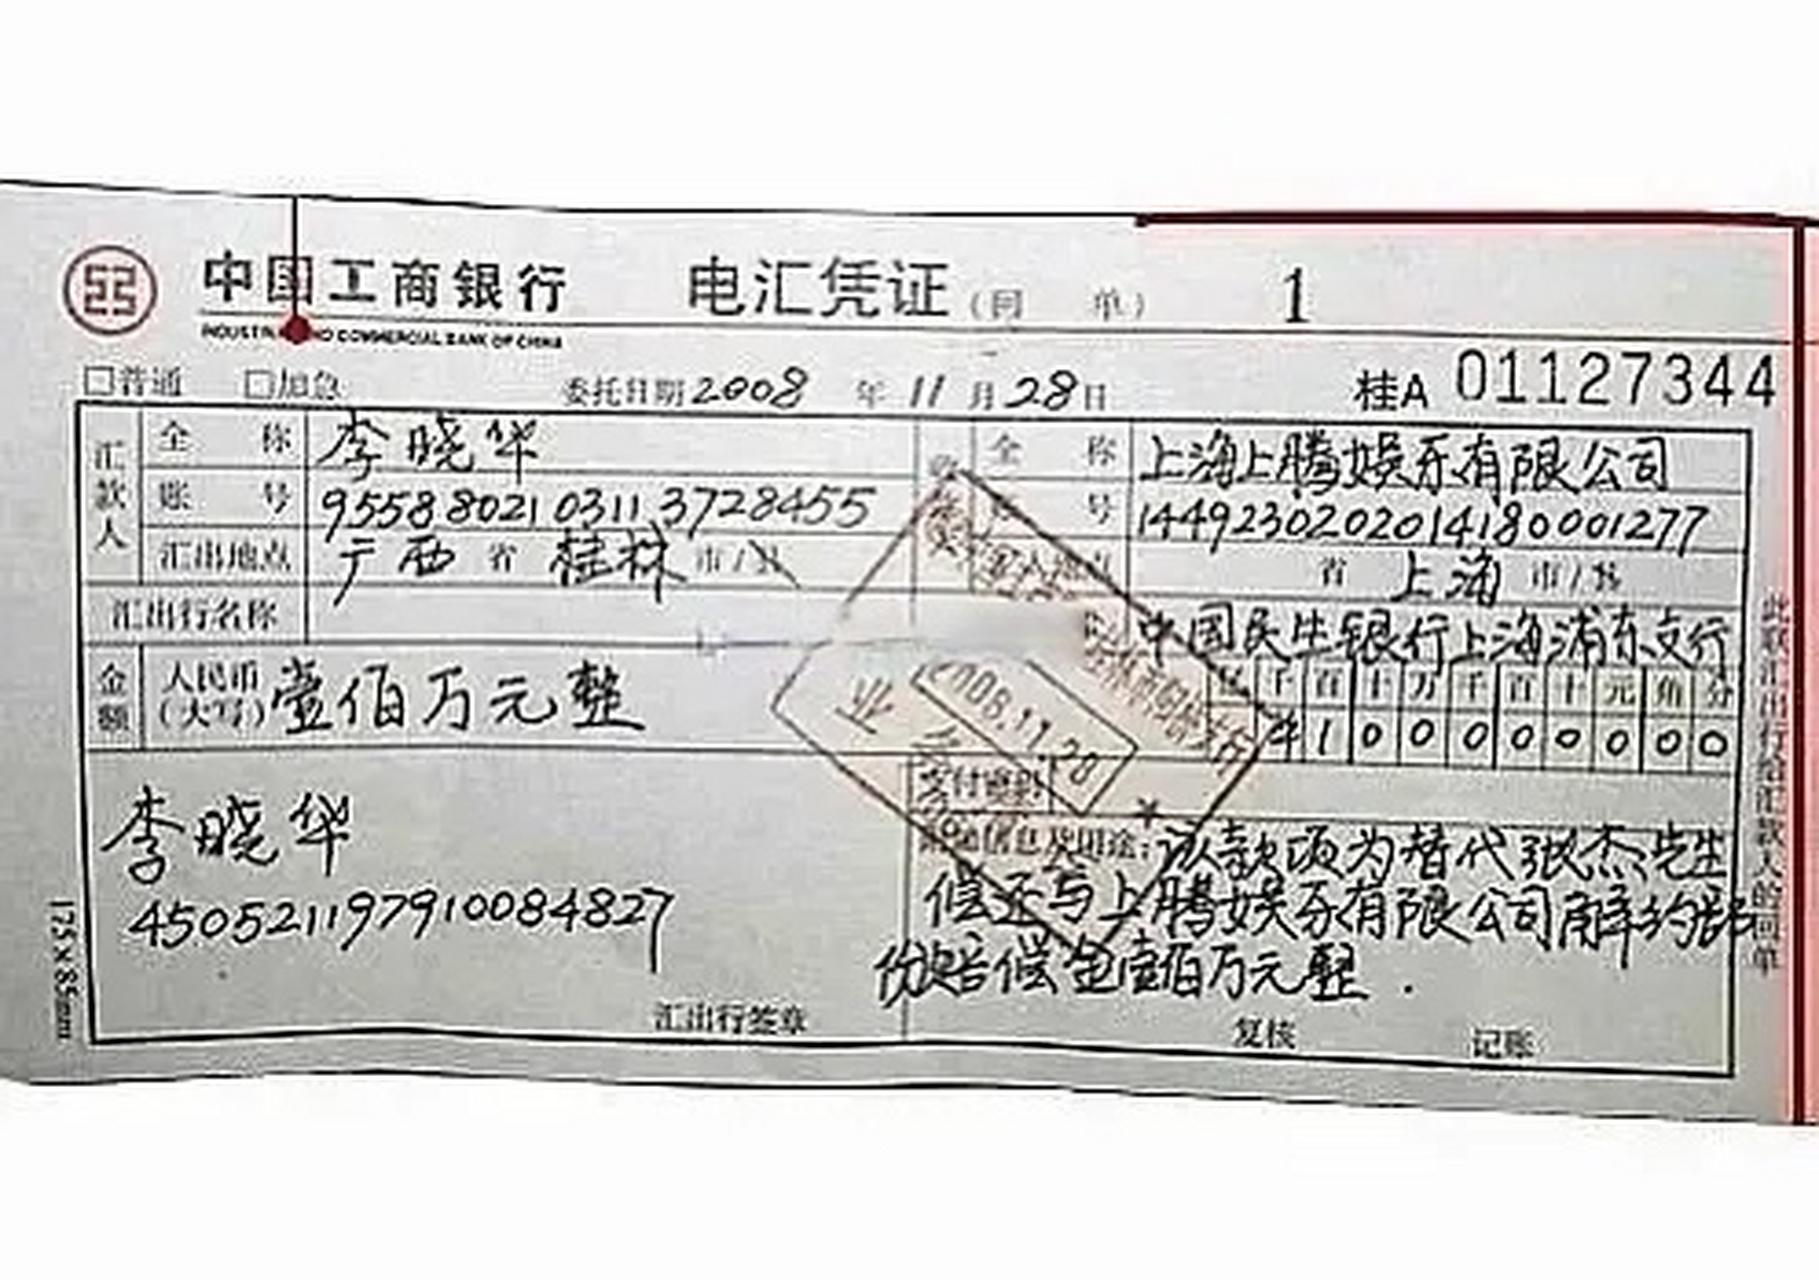 中国工商银行 电汇凭证 (回 单) 1
COMMERCIAL BANK OF CHINA
□普通 □加急 委托日期 2008 年 11 月 28 日 桂A 01127344
汇款人 全称 李晓华 全称 上海上腾娱乐有限公司
账号 9558802103113728455 号 1449230202014180001277
汇出地点 广西 省 桂林 市/县 省 上海 市/县
汇出行名称 中国民生银行上海浦东支行
金额 人民币(大写) 壹佰万元整 千 百 十 万 千 百 十 元 角 分
1 0 0 0 0 0 0 0 0
2008.11.28
业
支付密码
李晓华
450521197910084827
附加信息及用途: 该款项为替代张杰先生
偿还与上腾娱乐有限公司解约部
份赔偿金壹佰万元整.
汇出行签章 复核 记账
175×85mm